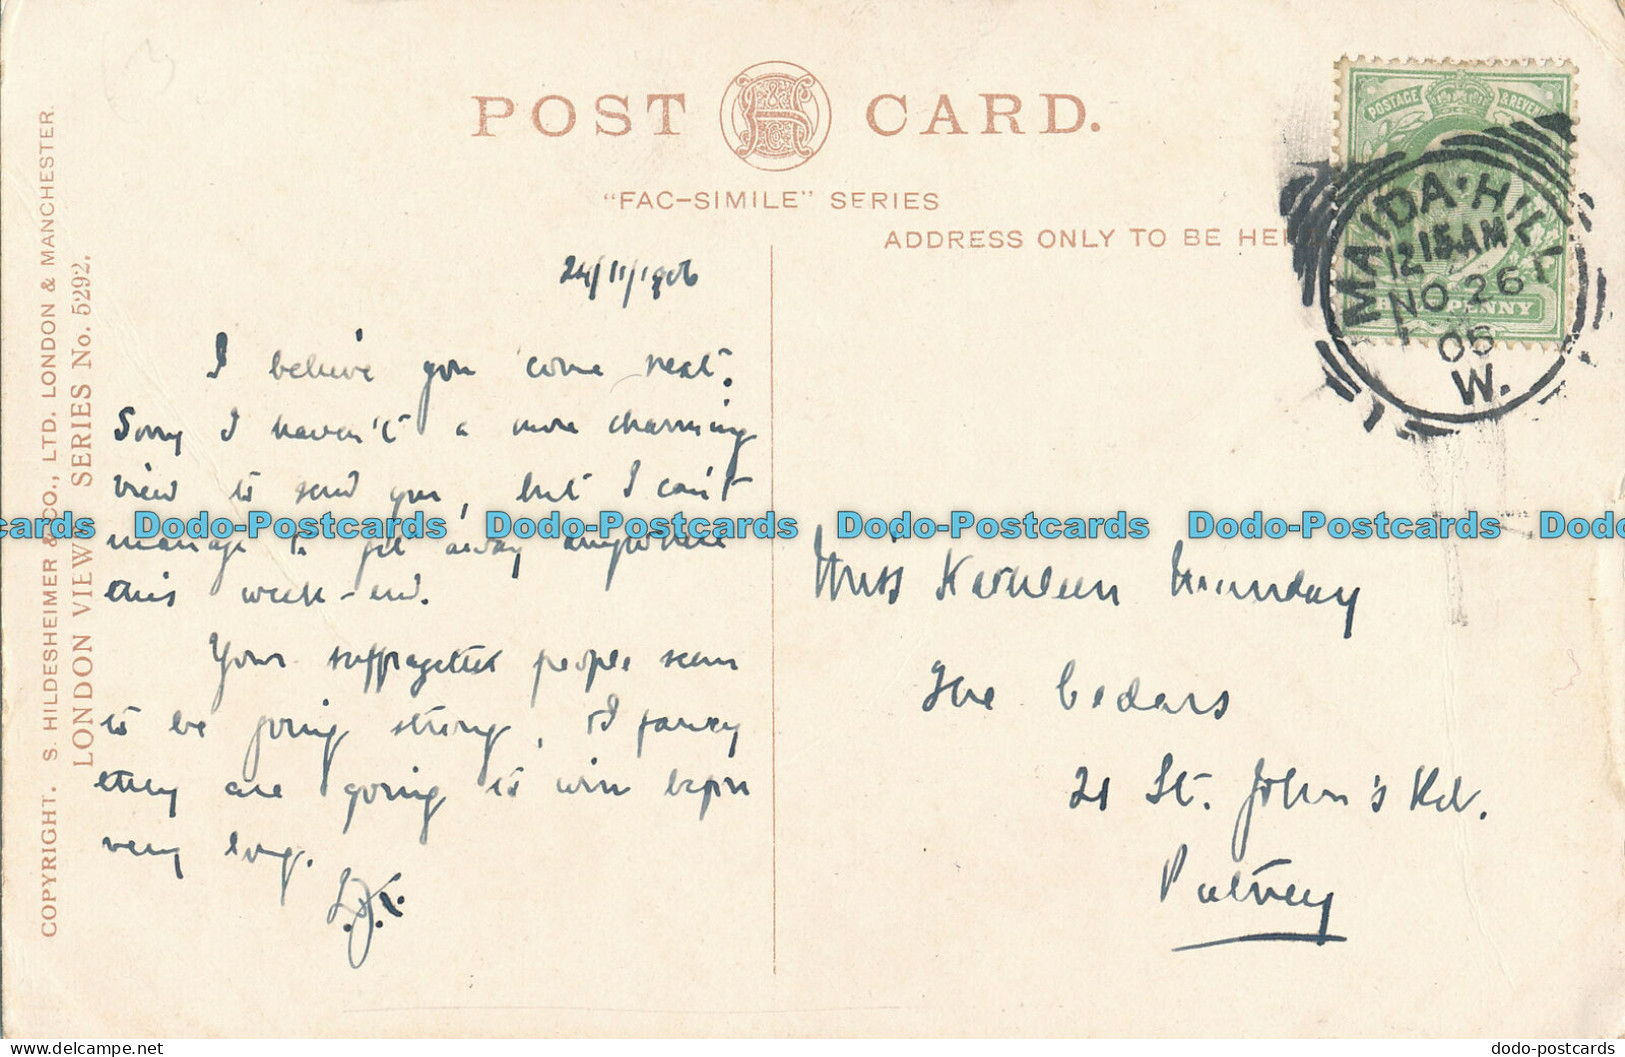 POST CARD.
"FAC-SIMILE" SERIES
ADDRESS ONLY TO BE HE
COPYRIGHT. S. HILDESHEIMER & CO., LTD. LONDON & MANCHESTER.
LONDON VIEWS SERIES No. 5292.
POSTAGE & REVEN
PENNY
MAIDA·HILL
12 15 AM
NO 26
06
W.
24/11/1906
I believe you come next.
Sorry I haven't a more charming
view to send you, but I can't
manage to get away anywhere
this week-end.
Your suffragettes people seem
to be going strong, & I fancy
they are going to win before
very long.
Miss Kathleen Munday
The Cedars
21 St. John's Rd.
Putney
Dodo-Postcards Dodo-Postcards Dodo-Postcards Dodo-Postcards
dodo-postcards
https://www.delcampe.net